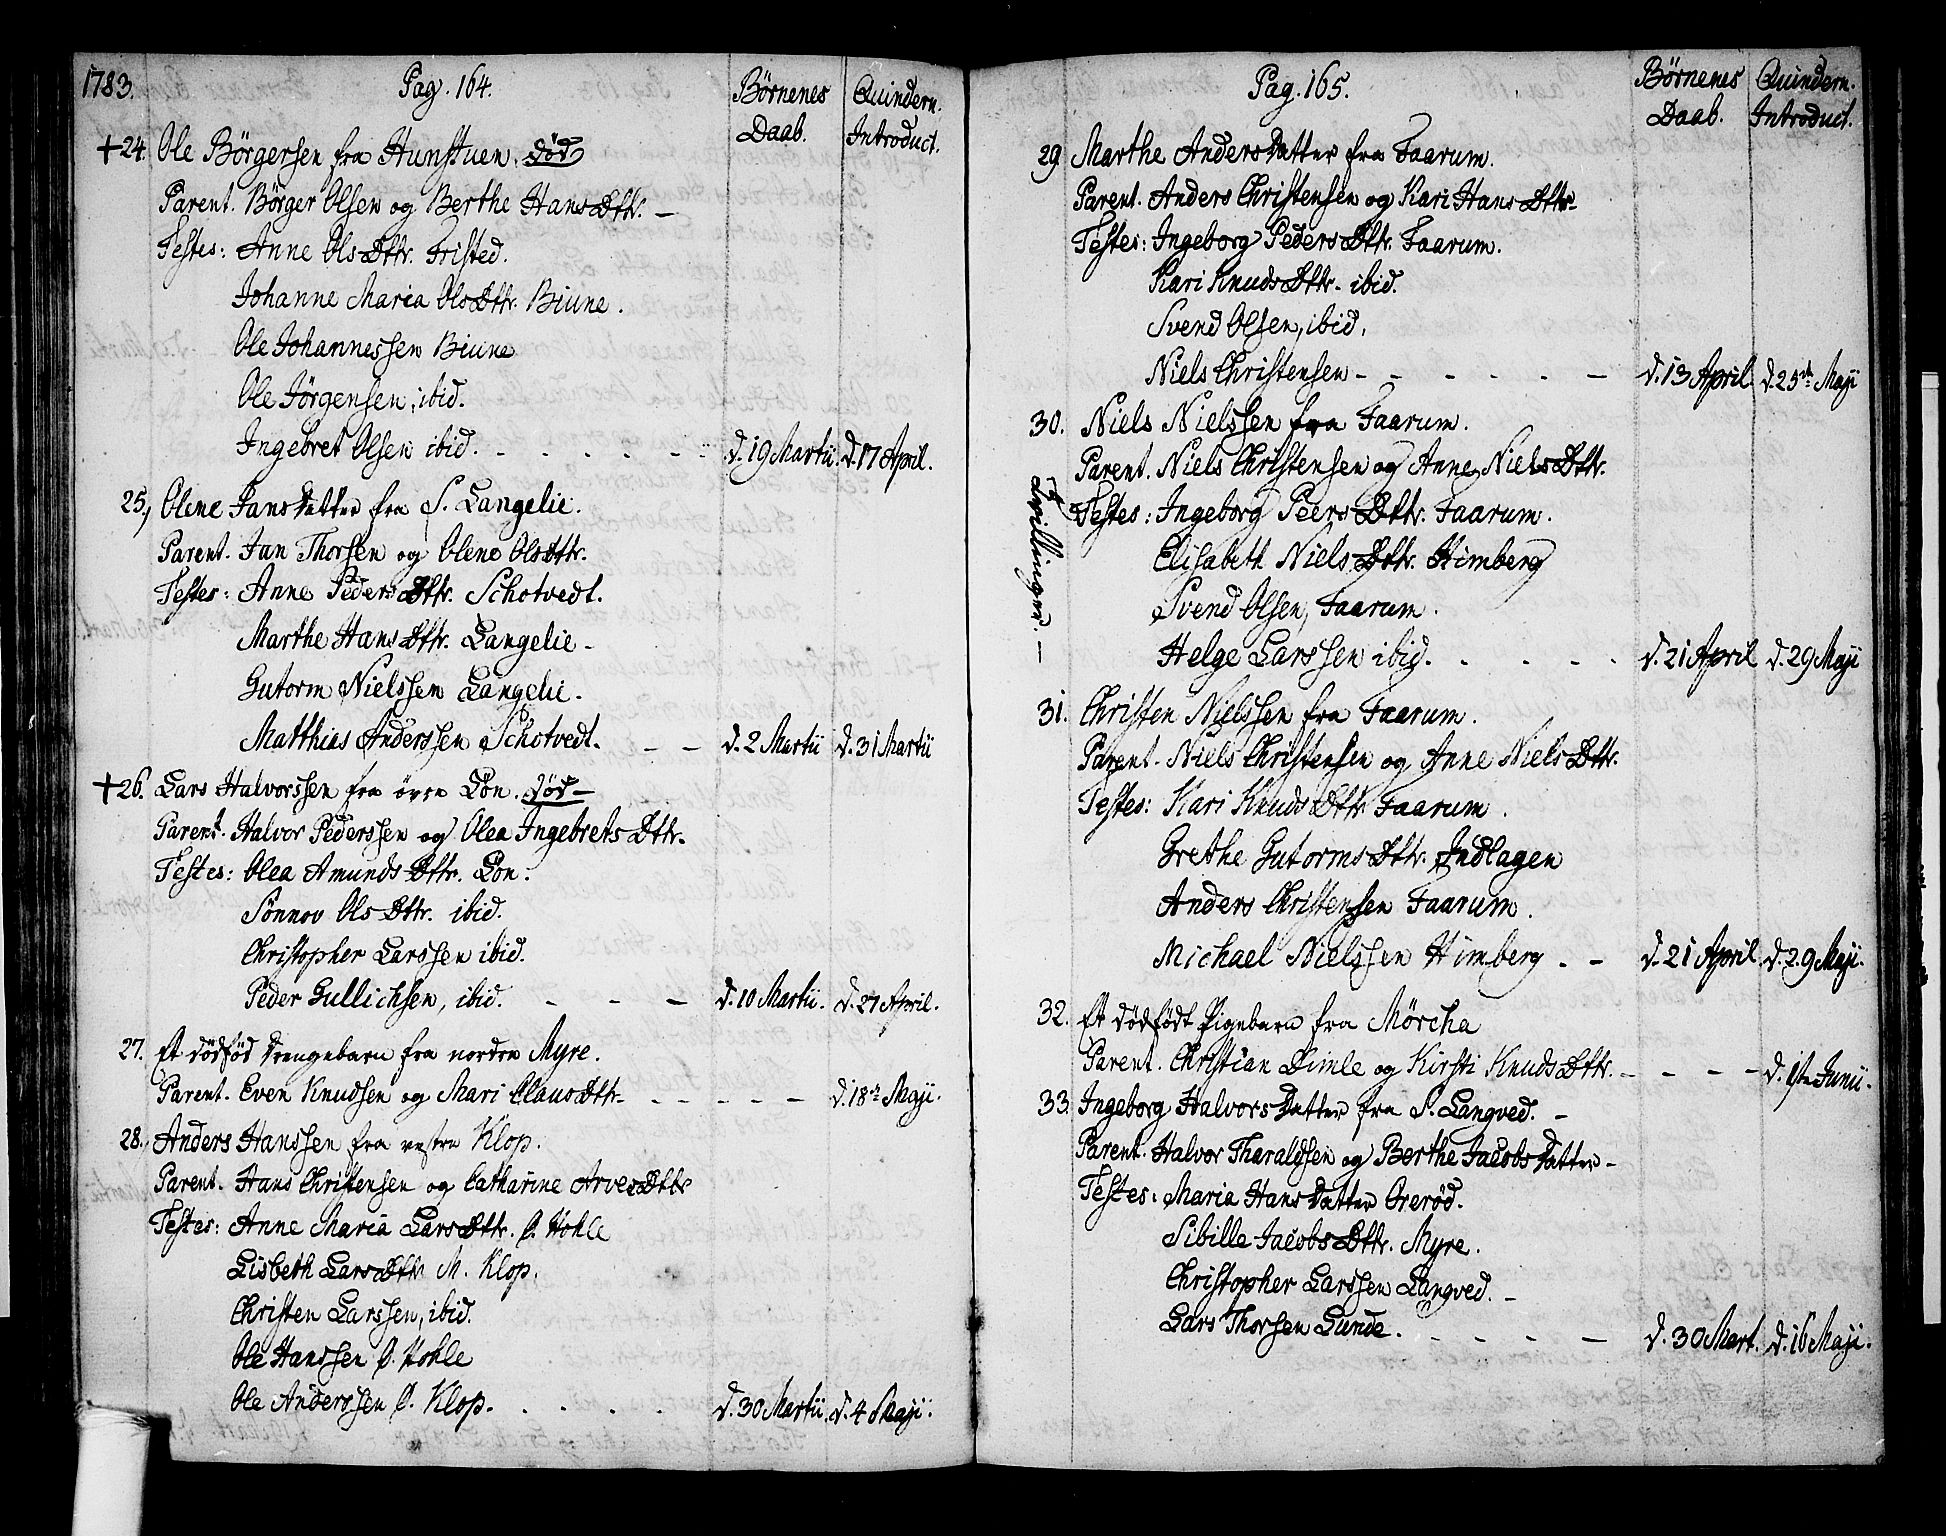 1783. Pag. 164. Börnenes Daab. Quindern. Introduct.
+24. Ole Börgersen fra Hunstuen. død
Parent. Börger Olsen og Berthe HansDttr. –
Testes: Anne OlsDttr. Fristed.
Johanne Maria OlsDttr. Biune.
Ole Johannessen Biune
Ole Jörgensen, ibid.
Ingebret Olsen ibid. d. 19 Martii. d. 17 April.
25. Olene JansDatter fra S. Langelie.
Parent. Jan Thorsen og Olene OlsDttr.
Testes: Anne PedersDttr. Schotvedt.
Marthe HansDttr. Langelie –
Gutorm Nielssen Langelie.
Matthias Anderssen Schotvedt. – – d. 2 Martii d. 31 Martii
+26. Lars Halvorssen fra övre Lön. død –
Parent. Halvor Pederssen og Olea IngebretsDttr.
Testes: Olea AmundsDttr. Lön.
Sönnov OlsDttr. ibid.
Christopher Larssen ibid.
Peder Gullichsen, ibid. – – – d. 10 Martii. d. 27 April.
27. Et dödföd Drengebarn fra nordre Myre.
Parent. Even Knudsen og Mari ClausDttr – – d. 18de Maji.
28. Anders Hanssen fra vestre Klop.
Parent. Hans Christensen og Catharine ArvesDttr
Testes: Anne Maria LarsDttr. Ø. Hohle
Lisbeth LarsDttr M. Klop.
Christen Larssen, ibid.
Ole Hanssen Ø. Hohle
Ole Anderssen Ø. Klop. d. 30 Martii. d. 4 Maji.
Pag. 165. Börnenes Daab. Quindern. Introduct.
29 Marthe AndersDatter fra Faarum.
Parent. Anders Christensen og Kari HansDttr –
Testes: Ingeborg PedersDttr. Faarum.
Kari KnudsDttr. ibid.
Svend Olsen, ibid.
Niels Christensen – – – – – – d. 13 April. d. 25de Maji
30. Niels Nielssen fra Faarum.
Parent. Niels Christensen og Anne NielsDttr.
Testes: Ingeborg PeersDttr. Faarum.
Elisabeth NielsDttr. Himberg
Svend Olsen, Faarum.
Helge Larssen ibid. d. 21 April d. 29 Maji
Tvillinger. –
31. Christen Nielssen fra Faarum.
Parent. Niels Christensen og Anne NielsDttr.
Testes: Kari KnudsDttr Faarum.
Grethe GutormsDttr. Indlagen
Anders Christensen Faarum.
Michael Nielssen Himberg. – d. 21 April. d. 29 Maji.
32. Et dödfödt Pigebarn fra Mörcha
Parent. Christian Dimle og Kirsti KnudsDttr. – – – – d. 1ste Junii.
33. Ingeborg HalvorsDatter fra S. Langved. –
Parent. Halvor Tharaldsen og Berthe JacobsDatter –
Testes: Maria HansDatter Orerød.
Sibille JacobsDttr. Myre.
Christopher Larssen Langved. –
Lars Thorsen Lunde. – – – – d. 30 Mart. d. 16 Maji.